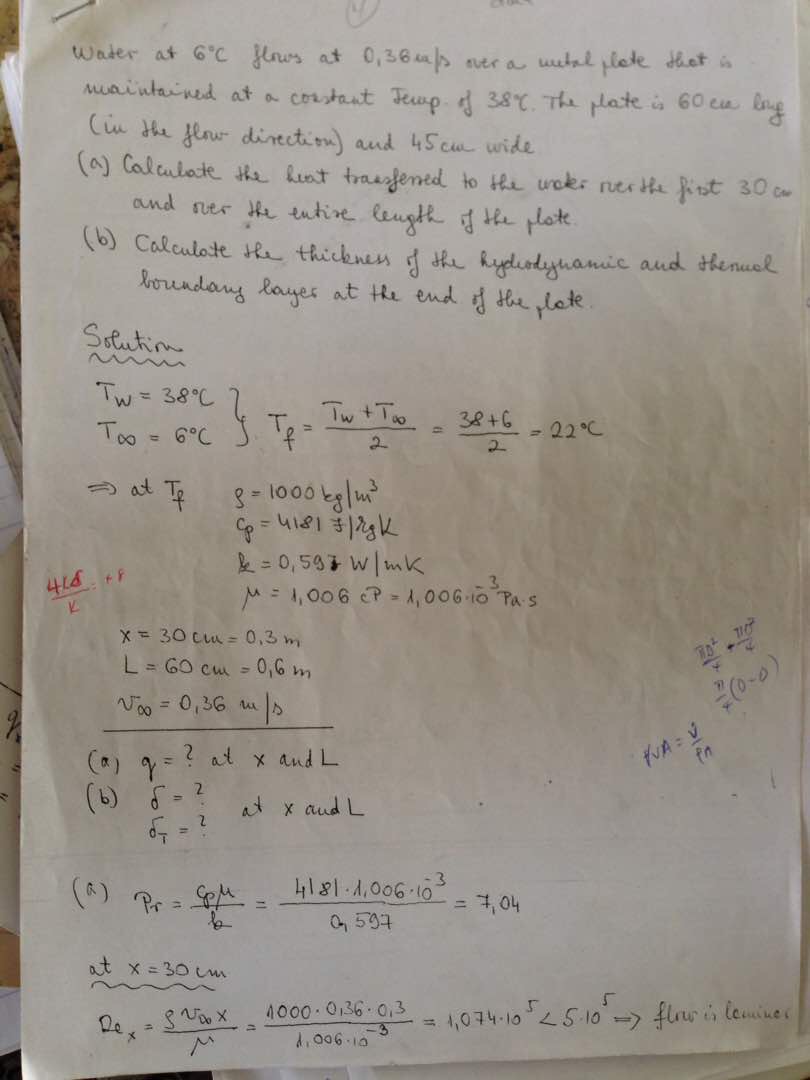 Water at 6°C flows at 0,36 m/s over a metal plate that is
maintained at a constant Temp. of 38°C. The plate is 60 cm long
(in the flow direction) and 45 cm wide.
(a) Calculate the heat transferred to the water over the first 30 cm
and over the entire length of the plate.
(b) Calculate the thickness of the hydrodynamic and thermal
boundary layer at the end of the plate.
Solution
T_w = 38°C
T_∞ = 6°C } T_f = (T_w + T_∞)/2 = (38+6)/2 = 22°C
⇒ at T_f ρ = 1000 kg/m³
c_p = 4181 J/kgK
k = 0,597 W/mK
μ = 1,006 cP = 1,006·10⁻³ Pa·s
x = 30 cm = 0,3 m
L = 60 cm = 0,6 m
v_∞ = 0,36 m/s
(a) q = ? at x and L
(b) δ = ?
δ_T = ? at x and L
(a) Pr = c_pμ/k = 4181·1,006·10⁻³/0,597 = 7,04
at x = 30 cm
Re_x = ρv_∞x/μ = 1000·0,36·0,3/1,006·10⁻³ = 1,074·10⁵ < 5·10⁵ ⇒ flow is laminar